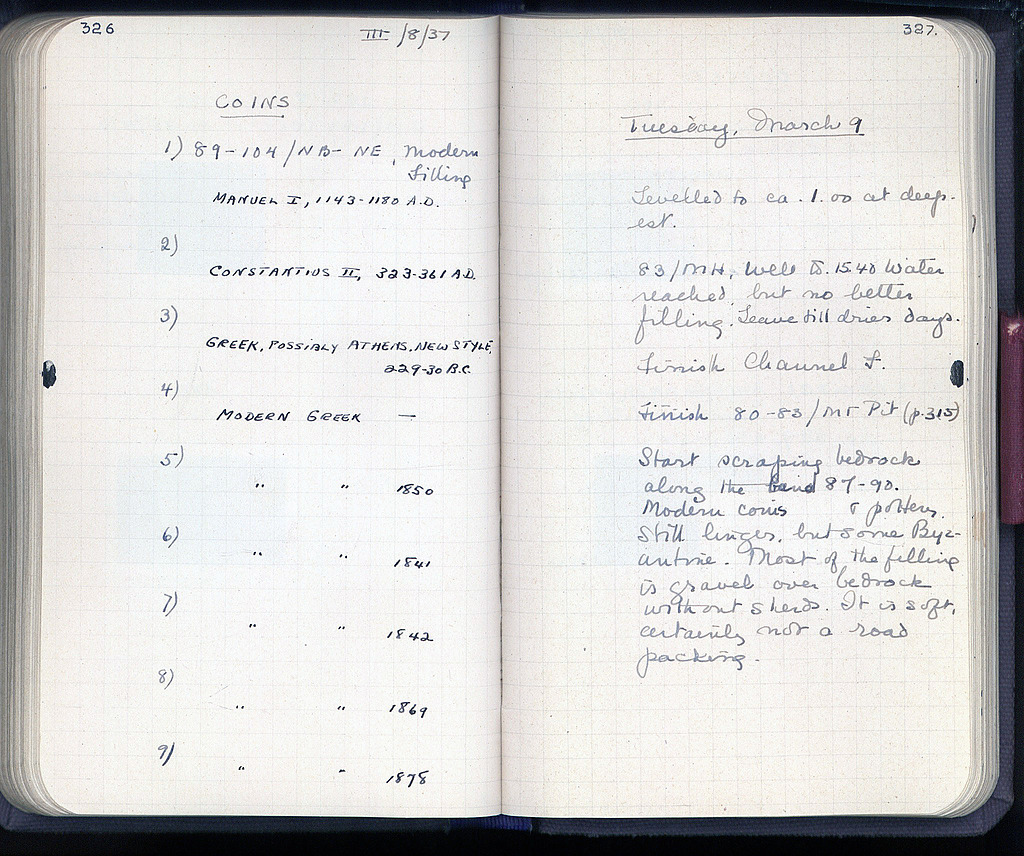 326
III /8/37
COINS
1) 89-104/NB- NE, Modern
filling
MANUEL I, 1143-1180 A.D.
2)
CONSTANTIUS II, 323-361 A.D.
3)
GREEK, POSSIBLY ATHENS, NEW STYLE,
229-30 B.C.
4)
MODERN GREEK —
5)
" " 1850
6)
" " 1841
7)
" " 1842
8)
" " 1869
9)
" " 1878
327.
Tuesday, March 9
Levelled to ca. 1.00 at deep-
est.
83/MH, Well to 15.40 Water
reached, but no better
filling. Leave till drier days.
Finish Channel F.
Finish 80-83/MT Pit (p.315)
Start scraping bedrock
along the 87-90.
Modern coins & pottery
still linger, but some Byz-
antine. Most of the filling
is gravel over bedrock
without sherds. It is soft,
certainly not a road
packing.